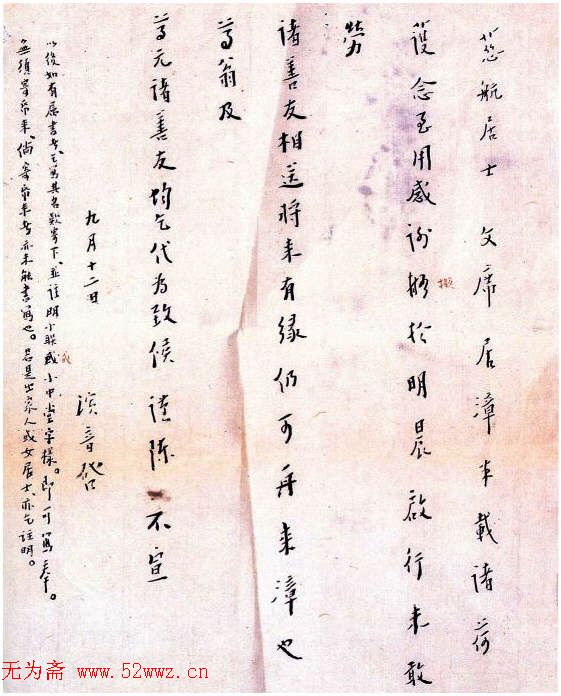 慈航居士 文席 居漳半載諸荷
護念至用感謝擬於明晨啟行未敢
擬
勞
諸善友相送將來有緣仍可再來漳也
尊翁及
尊元諸善友均乞代為致候謹陳 不宣
九月十二日
演音啓
以後如有屬書者、乞寫其名款寄下、並註明小聯或小中堂字樣。即可寫奉。
或
無須寄紙來、倘寄紙來者亦未能書寫也。若是出家人或女居士、亦乞註明。
无为斋 www.52wwz.cn